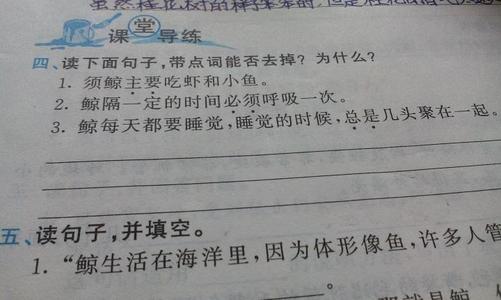 虽然桂花树的样子笨笨的,但是桂花
课堂导练
四、读下面句子,带点词能否去掉?为什么?
1. 须鲸主要吃虾和小鱼。
2. 鲸隔一定的时间必须呼吸一次。
3. 鲸每天都要睡觉,睡觉的时候,总是几头聚在一起。
五、读句子,并填空。
1. “鲸生活在海洋里,因为体形像鱼,许多人管
。